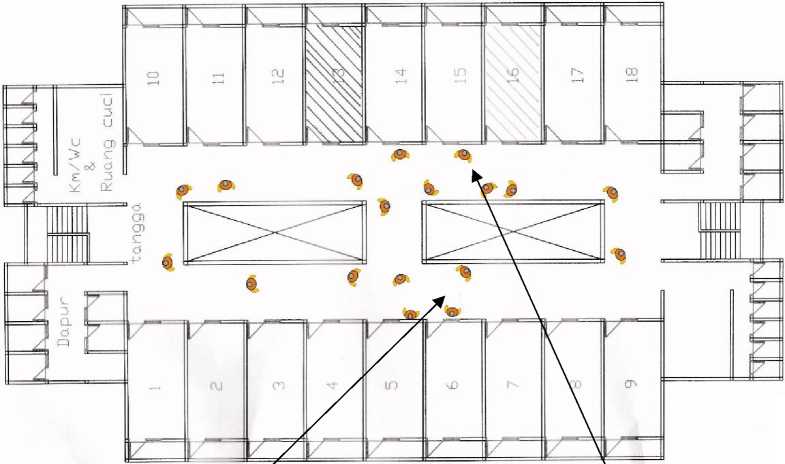 10
11
12
13
14
15
16
17
18
Km/Wc
&
Ruang cuci
tangga
Dapur
1
2
3
4
5
6
7
8
9